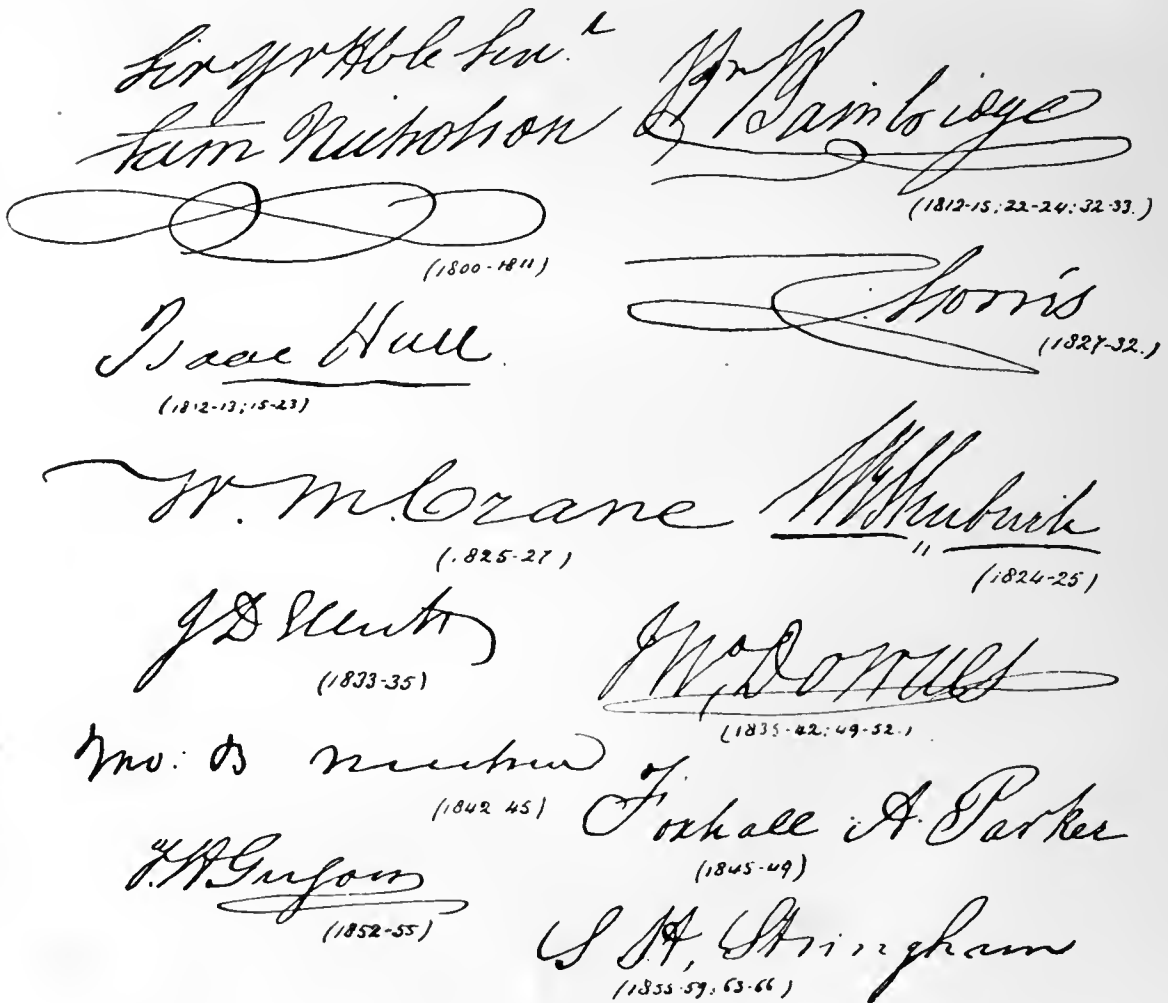 Sir Yr Hble Serv.t
Sam Nicholson
(1800-1811)
Wm Bainbridge
(1812-15; 22-24; 32-33.)
Isaac Hull
(1812-13; 15-23)
Morris
(1827-32.)
W. M. Crane
(1825-27)
WBShubrick
(1824-25)
J D
(1833-35)
Jno Downes
(1835-42; 49-52.)
Jno: B
(1842 45)
Foxhall A. Parker
(1845-49)
F. H Gregory
(1852-55)
S H, Stringham
(1855-59; 63-66)